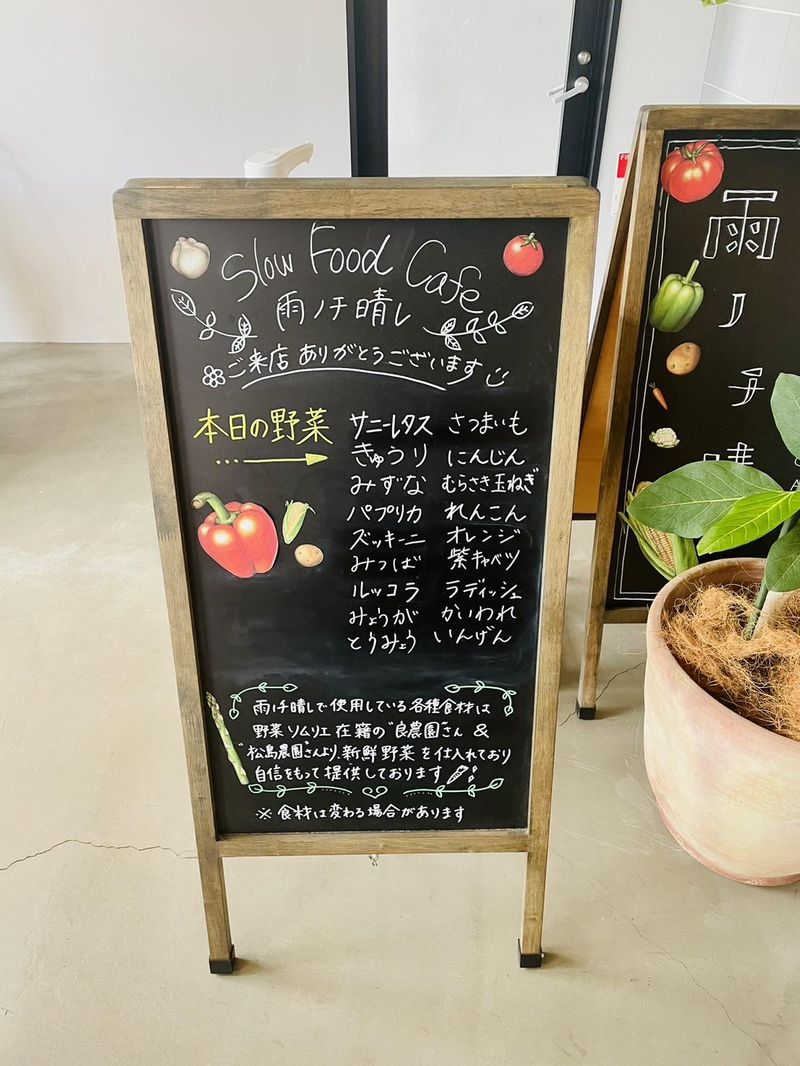 Slow Food Cafe
雨ノチ晴レ
ご来店ありがとうございます
本日の野菜
サニーレタス さつまいも
きゅうり にんじん
みずな むらさき玉ねぎ
パプリカ れんこん
ズッキーニ オレンジ
みつば 紫キャベツ
ルッコラ ラディッシェ
みょうが かいわれ
とうみょう いんげん
雨ノチ晴レで使用している各種食材は
野菜ソムリエ在籍の"良農園"さん &
"松島農園"さんより、新鮮野菜を仕入れており
自信をもって提供しております
※食材は変わる場合があります
雨
ノ
チ
晴